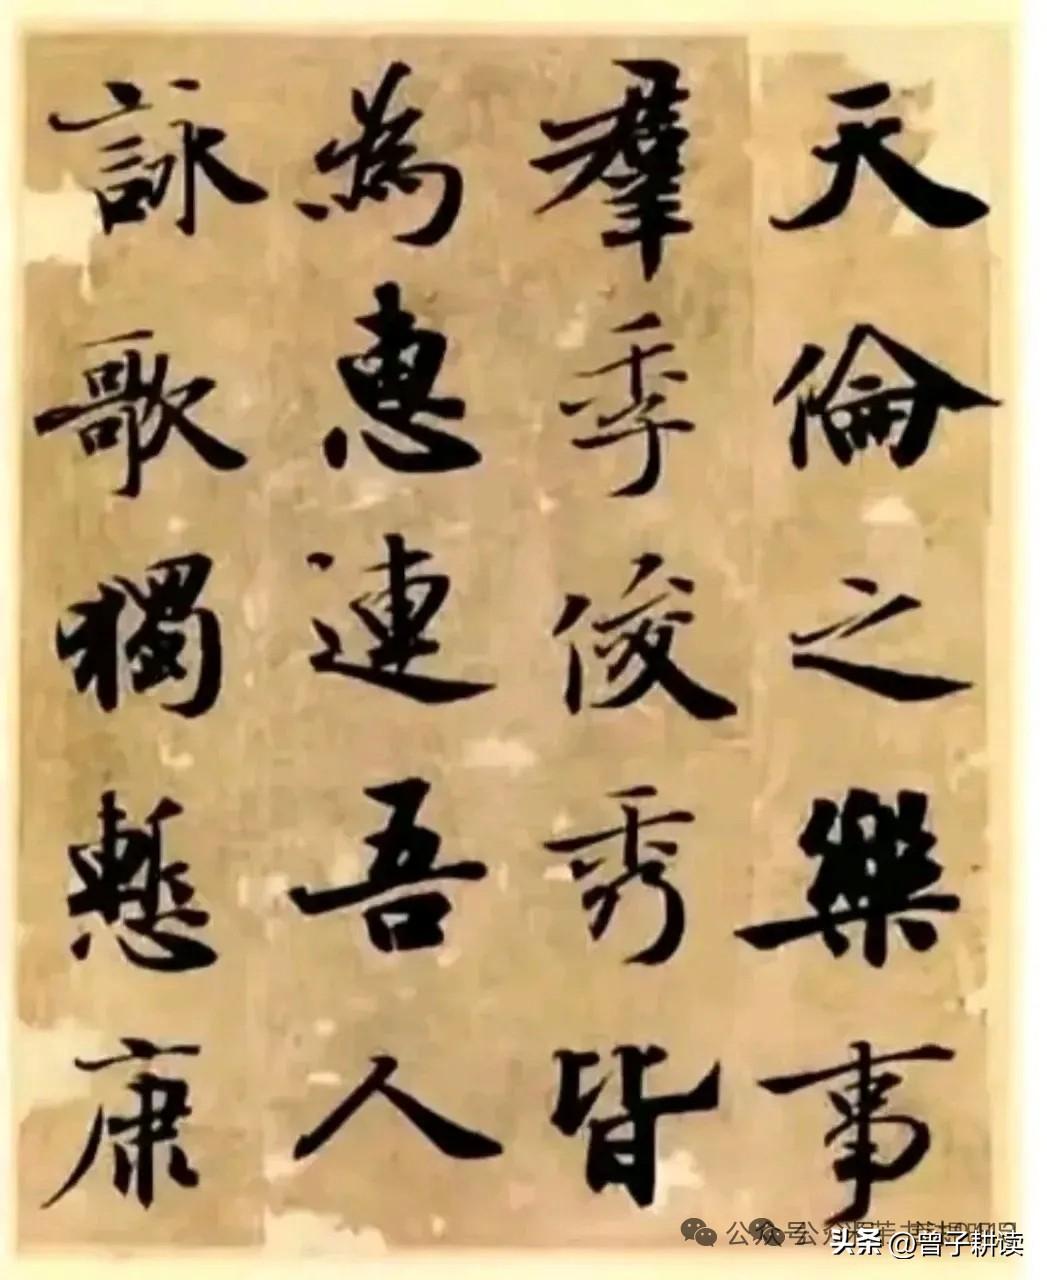 天倫之樂事
羣季俊秀皆
為惠連吾人
詠歌獨慙康
公众号
头条 @曾子耕读